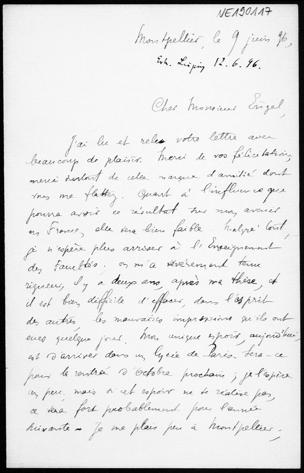 NE190117
Montpellier, le 9 juin 96,
Erh. Leipzig 12.6.96.
Cher Monsieur Engel,
J'ai lu et relu votre lettre avec
beaucoup de plaisir. Merci de vos félicitations,
merci surtout de cette marque d'amitié dont
vous me flattez. Quant à l'influence que
pourra avoir ce résultat sur mon avenir
en France, elle sera bien faible. Malgré tout,
je n'espère plus arriver à l'Enseignement
des Facultés; on m'a sévèrement tenu
rigueur, il y a deux ans, après ma thèse, et
il est bien difficile d'effacer, dans l'esprit
des autres les mauvaises impressions qu'ils ont
eues quelque jour. Mon unique espoir, aujourd'hui,
est d'arriver dans un lycée de Paris. Sera-ce
pour la rentrée d'Octobre prochain; je l'espère
un peu, mais si cet espoir ne se réalise pas,
ce sera fort probablement pour l'année
suivante. Je me plais peu à Montpellier,